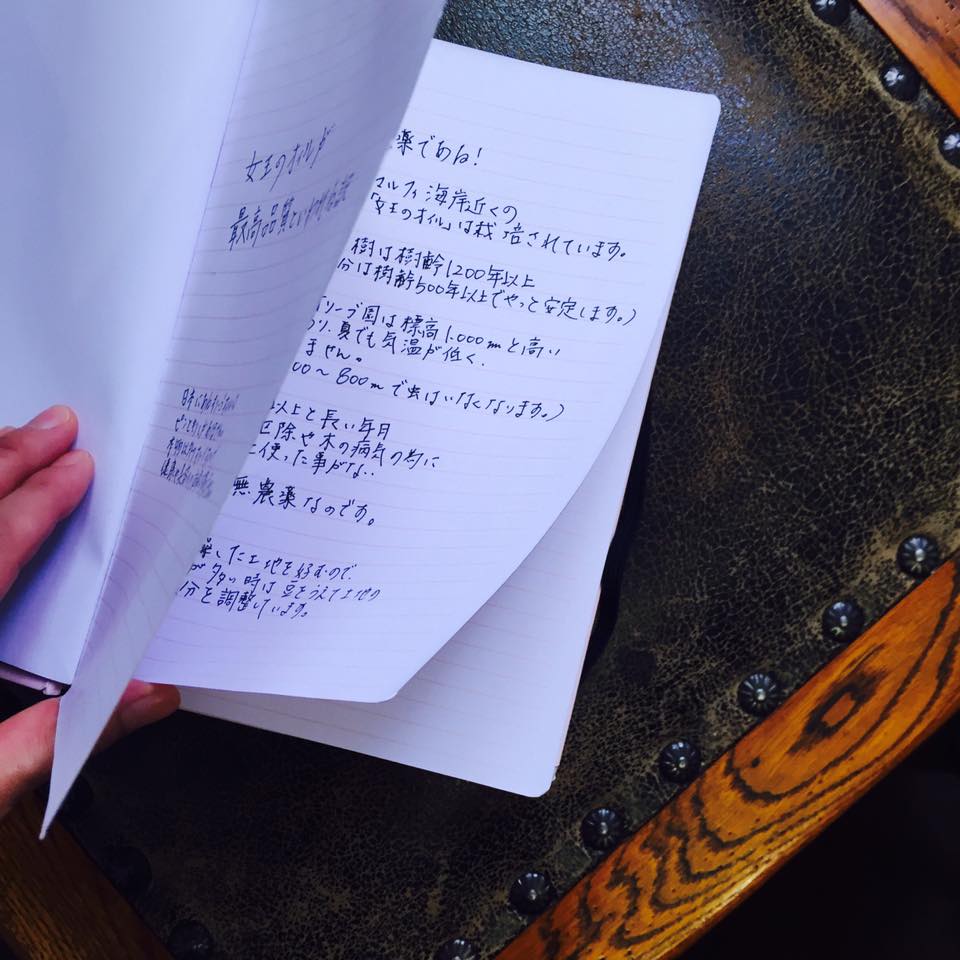 女王のオイルが
最高品質といわれる
薬である!
マルフィ海岸近くの
「女王のオイル」は栽培されています。
樹は樹齢1200年以上
分は樹齢500年以上でやっと安定します。)
リーブ園は標高1.000mと高い
り、夏でも気温が低く、
ません。
00〜800mで虫はいなくなります。)
以上と長い年月
区除や木の病気の為に
使った事がない
無農薬なのです。
燥した土地を好むので、
が多い時は豆をうえて土地の
分を調整しています。